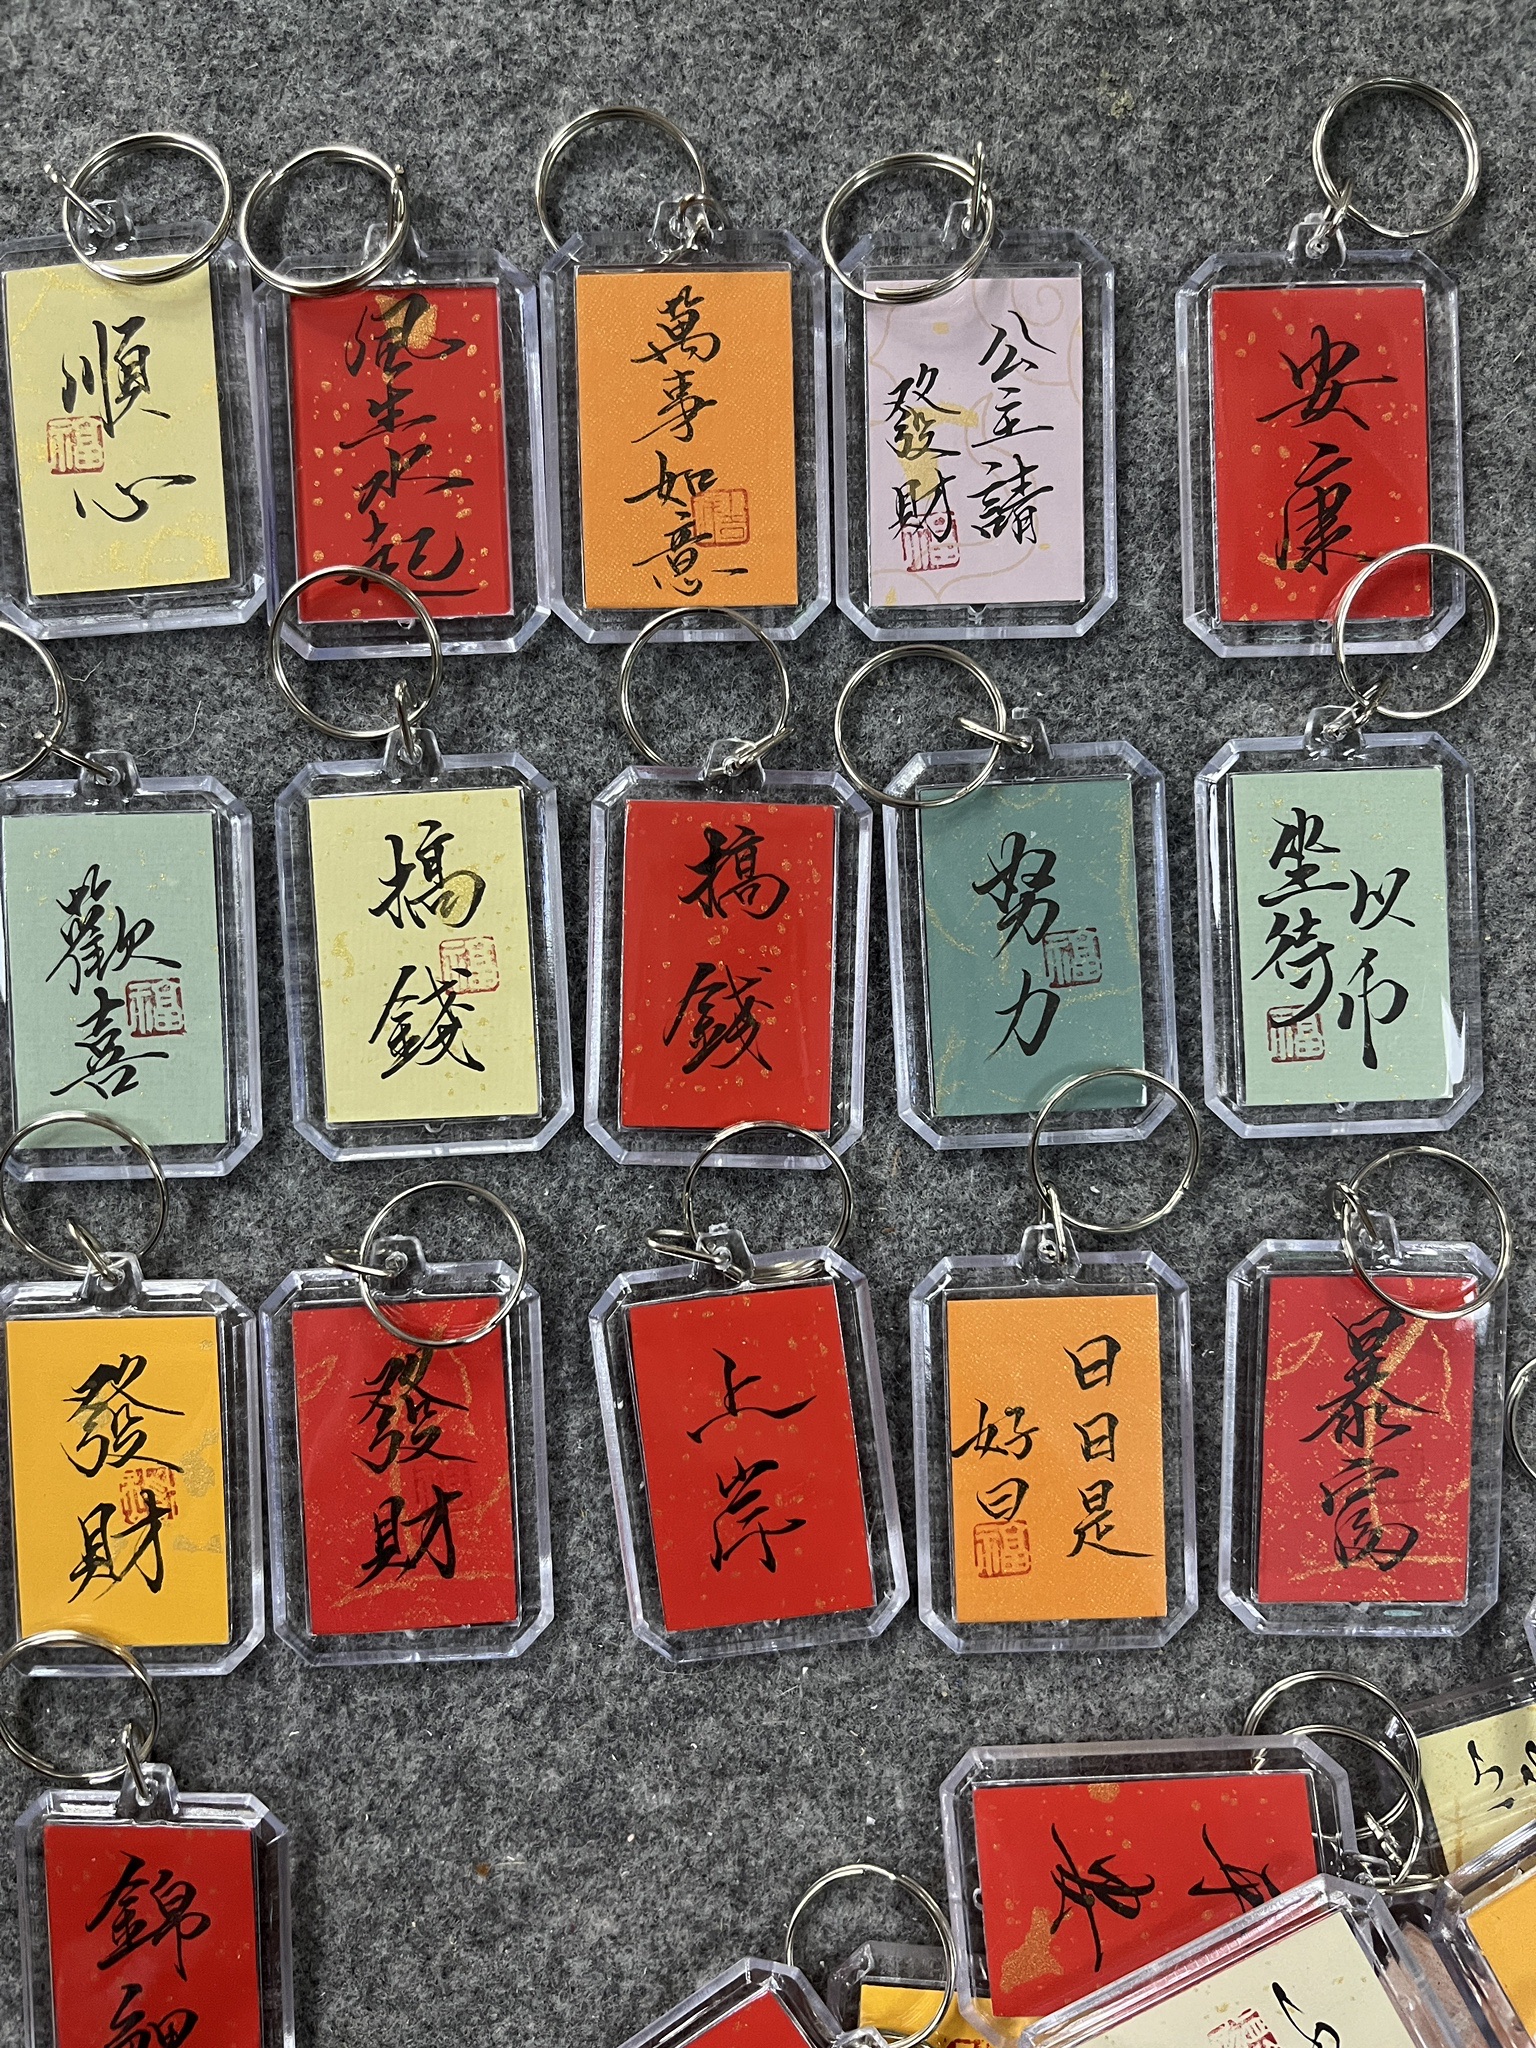 順心
風生水起
萬事如意
公主請
發財
安康
歡喜
搞錢
搞錢
努力
以币
坐待
發財
發財
上岸
日日是
好日
暴富
錦鯉
福
福
福
福
福
福
福
福